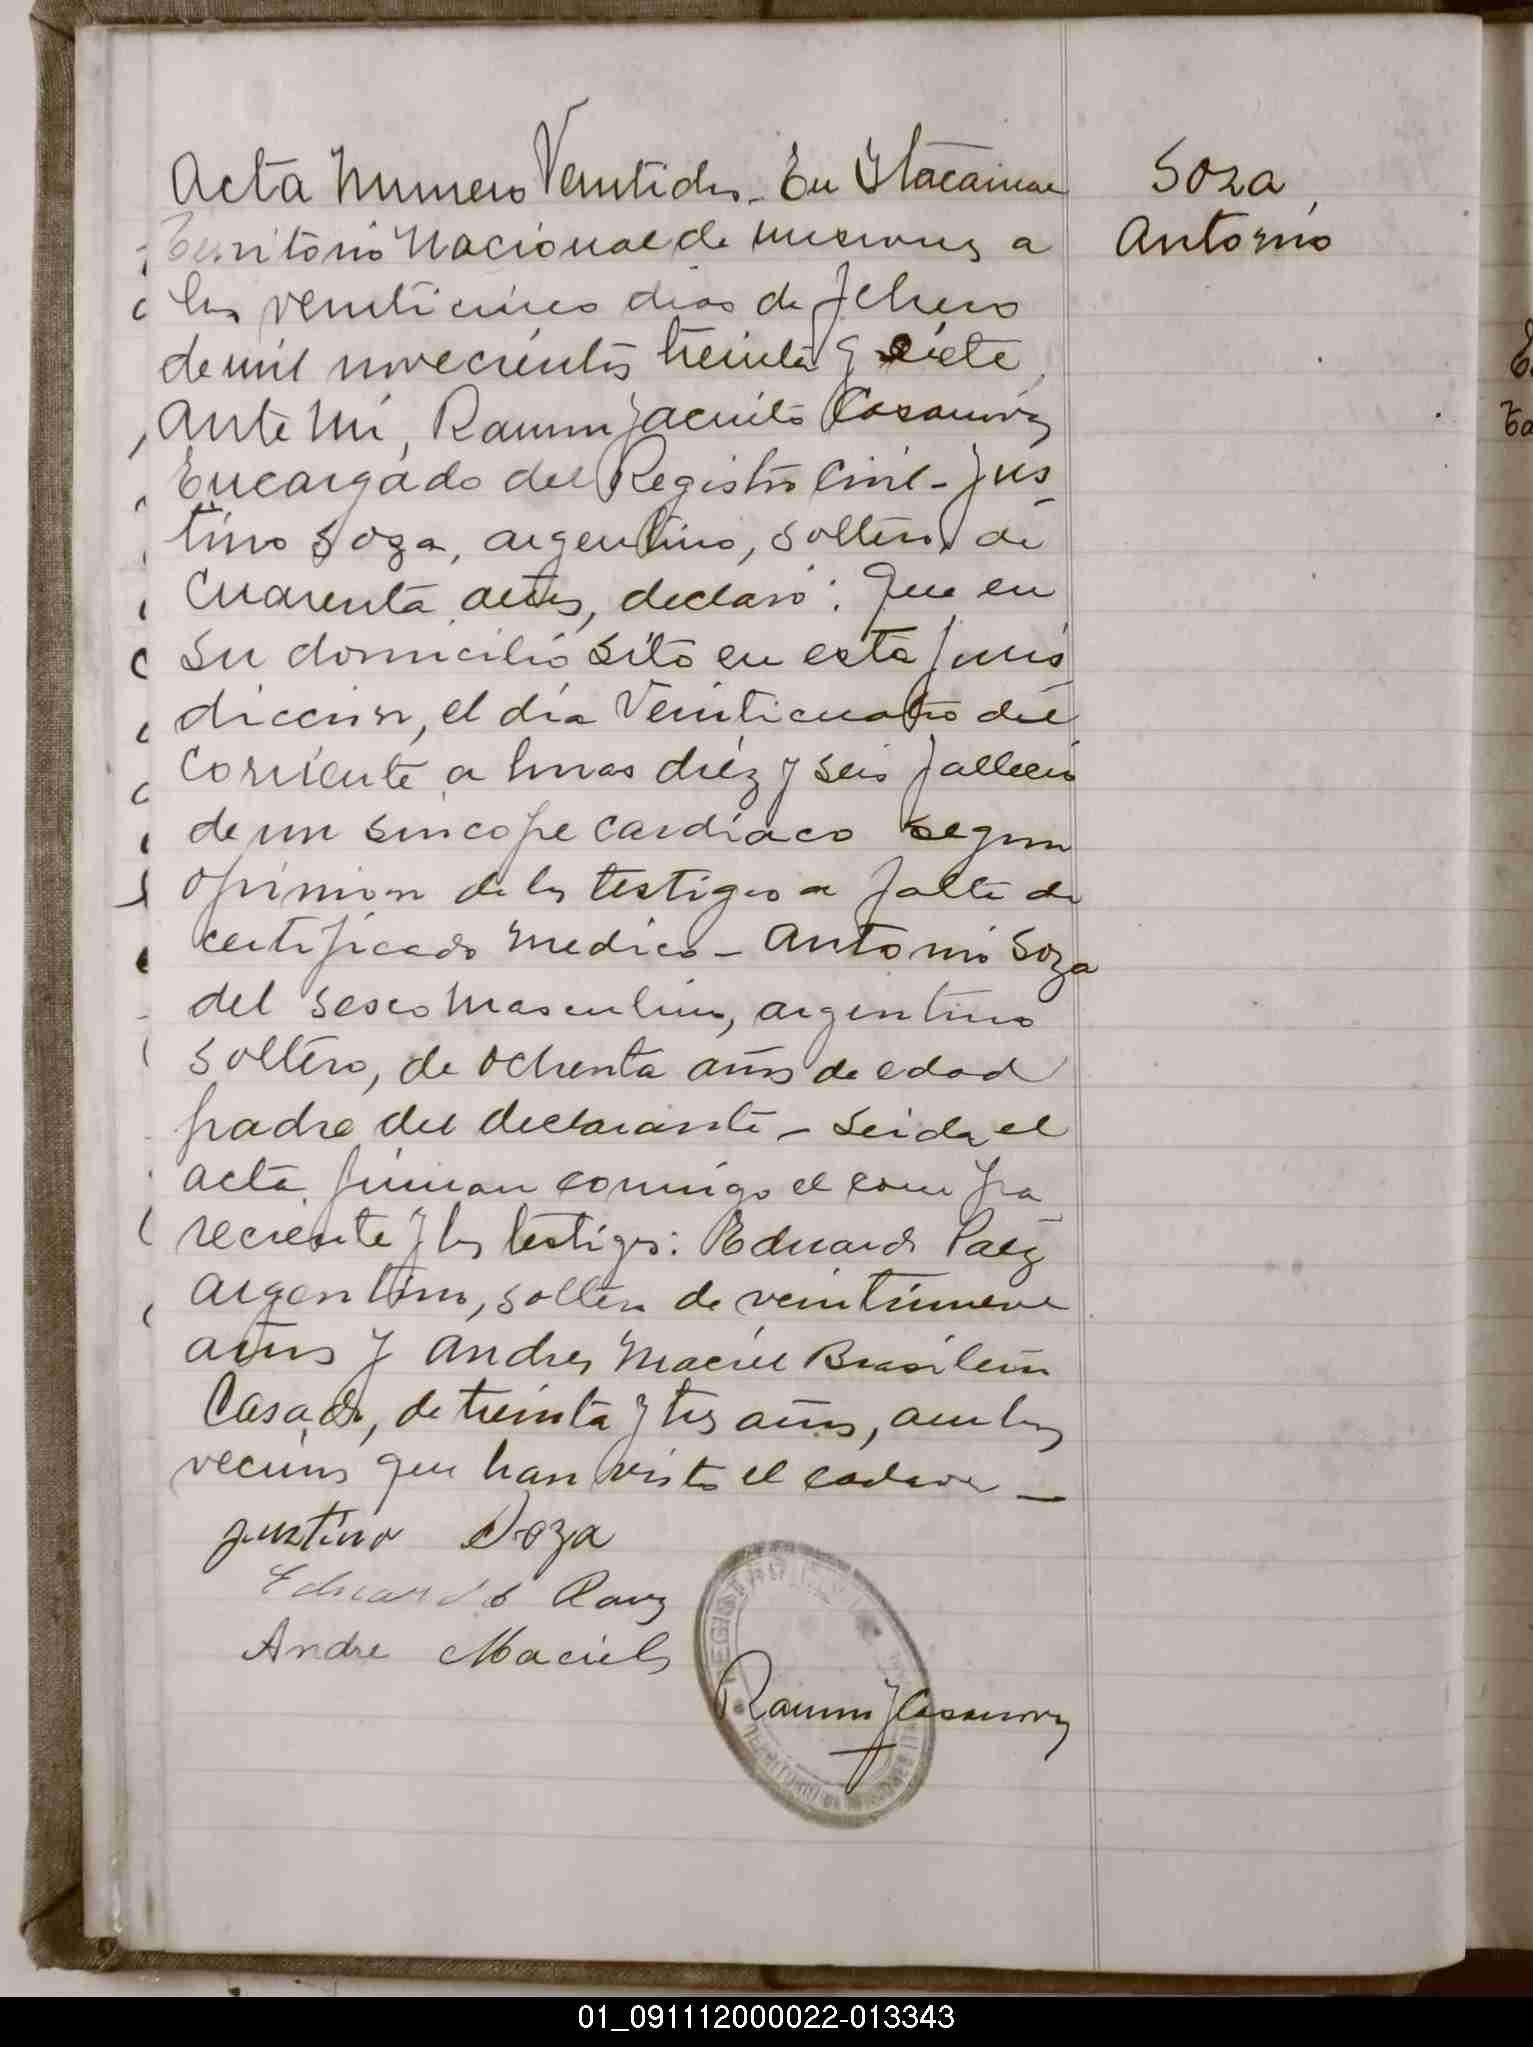 Acta Numero Ventidos_ En Itacaruare
Territorio Nacional de misiones a
los venticinco dias de febrero
de mil novecientos treinta y siete,
ante Mi, Ramon Jacinto Casanova
Encargado del Registro Civil_ Jus_
tino Soza, argentino, soltero, de
Cuarenta años, declaró: Que en
su domicilio sito en esta juris_
diccion, el día Veinticuatro del
corriente a horas diéz y seis fallecio
de un sincope cardíaco segun
opinion de los testigos a falta de
certificado medico_ Antonio Soza
del sexo masculino, argentino
soltero, de ochenta años de edad
padre del declarante_ Leida el
acta firman conmigo el compa_
reciente y los testigos: Eduardo Paéz
argentino, soltero de veintinueve
años y Andres Maciel Brasilero
Casado, de treinta y tres años, ambos
vecinos que han visto el cadaver_
Justino Soza
Eduardo Paez
Andre Maciel
Ramon J Casanova
Soza,
Antonio
REGISTRO CIVIL
TERRITORIO
01_091112000022-013343